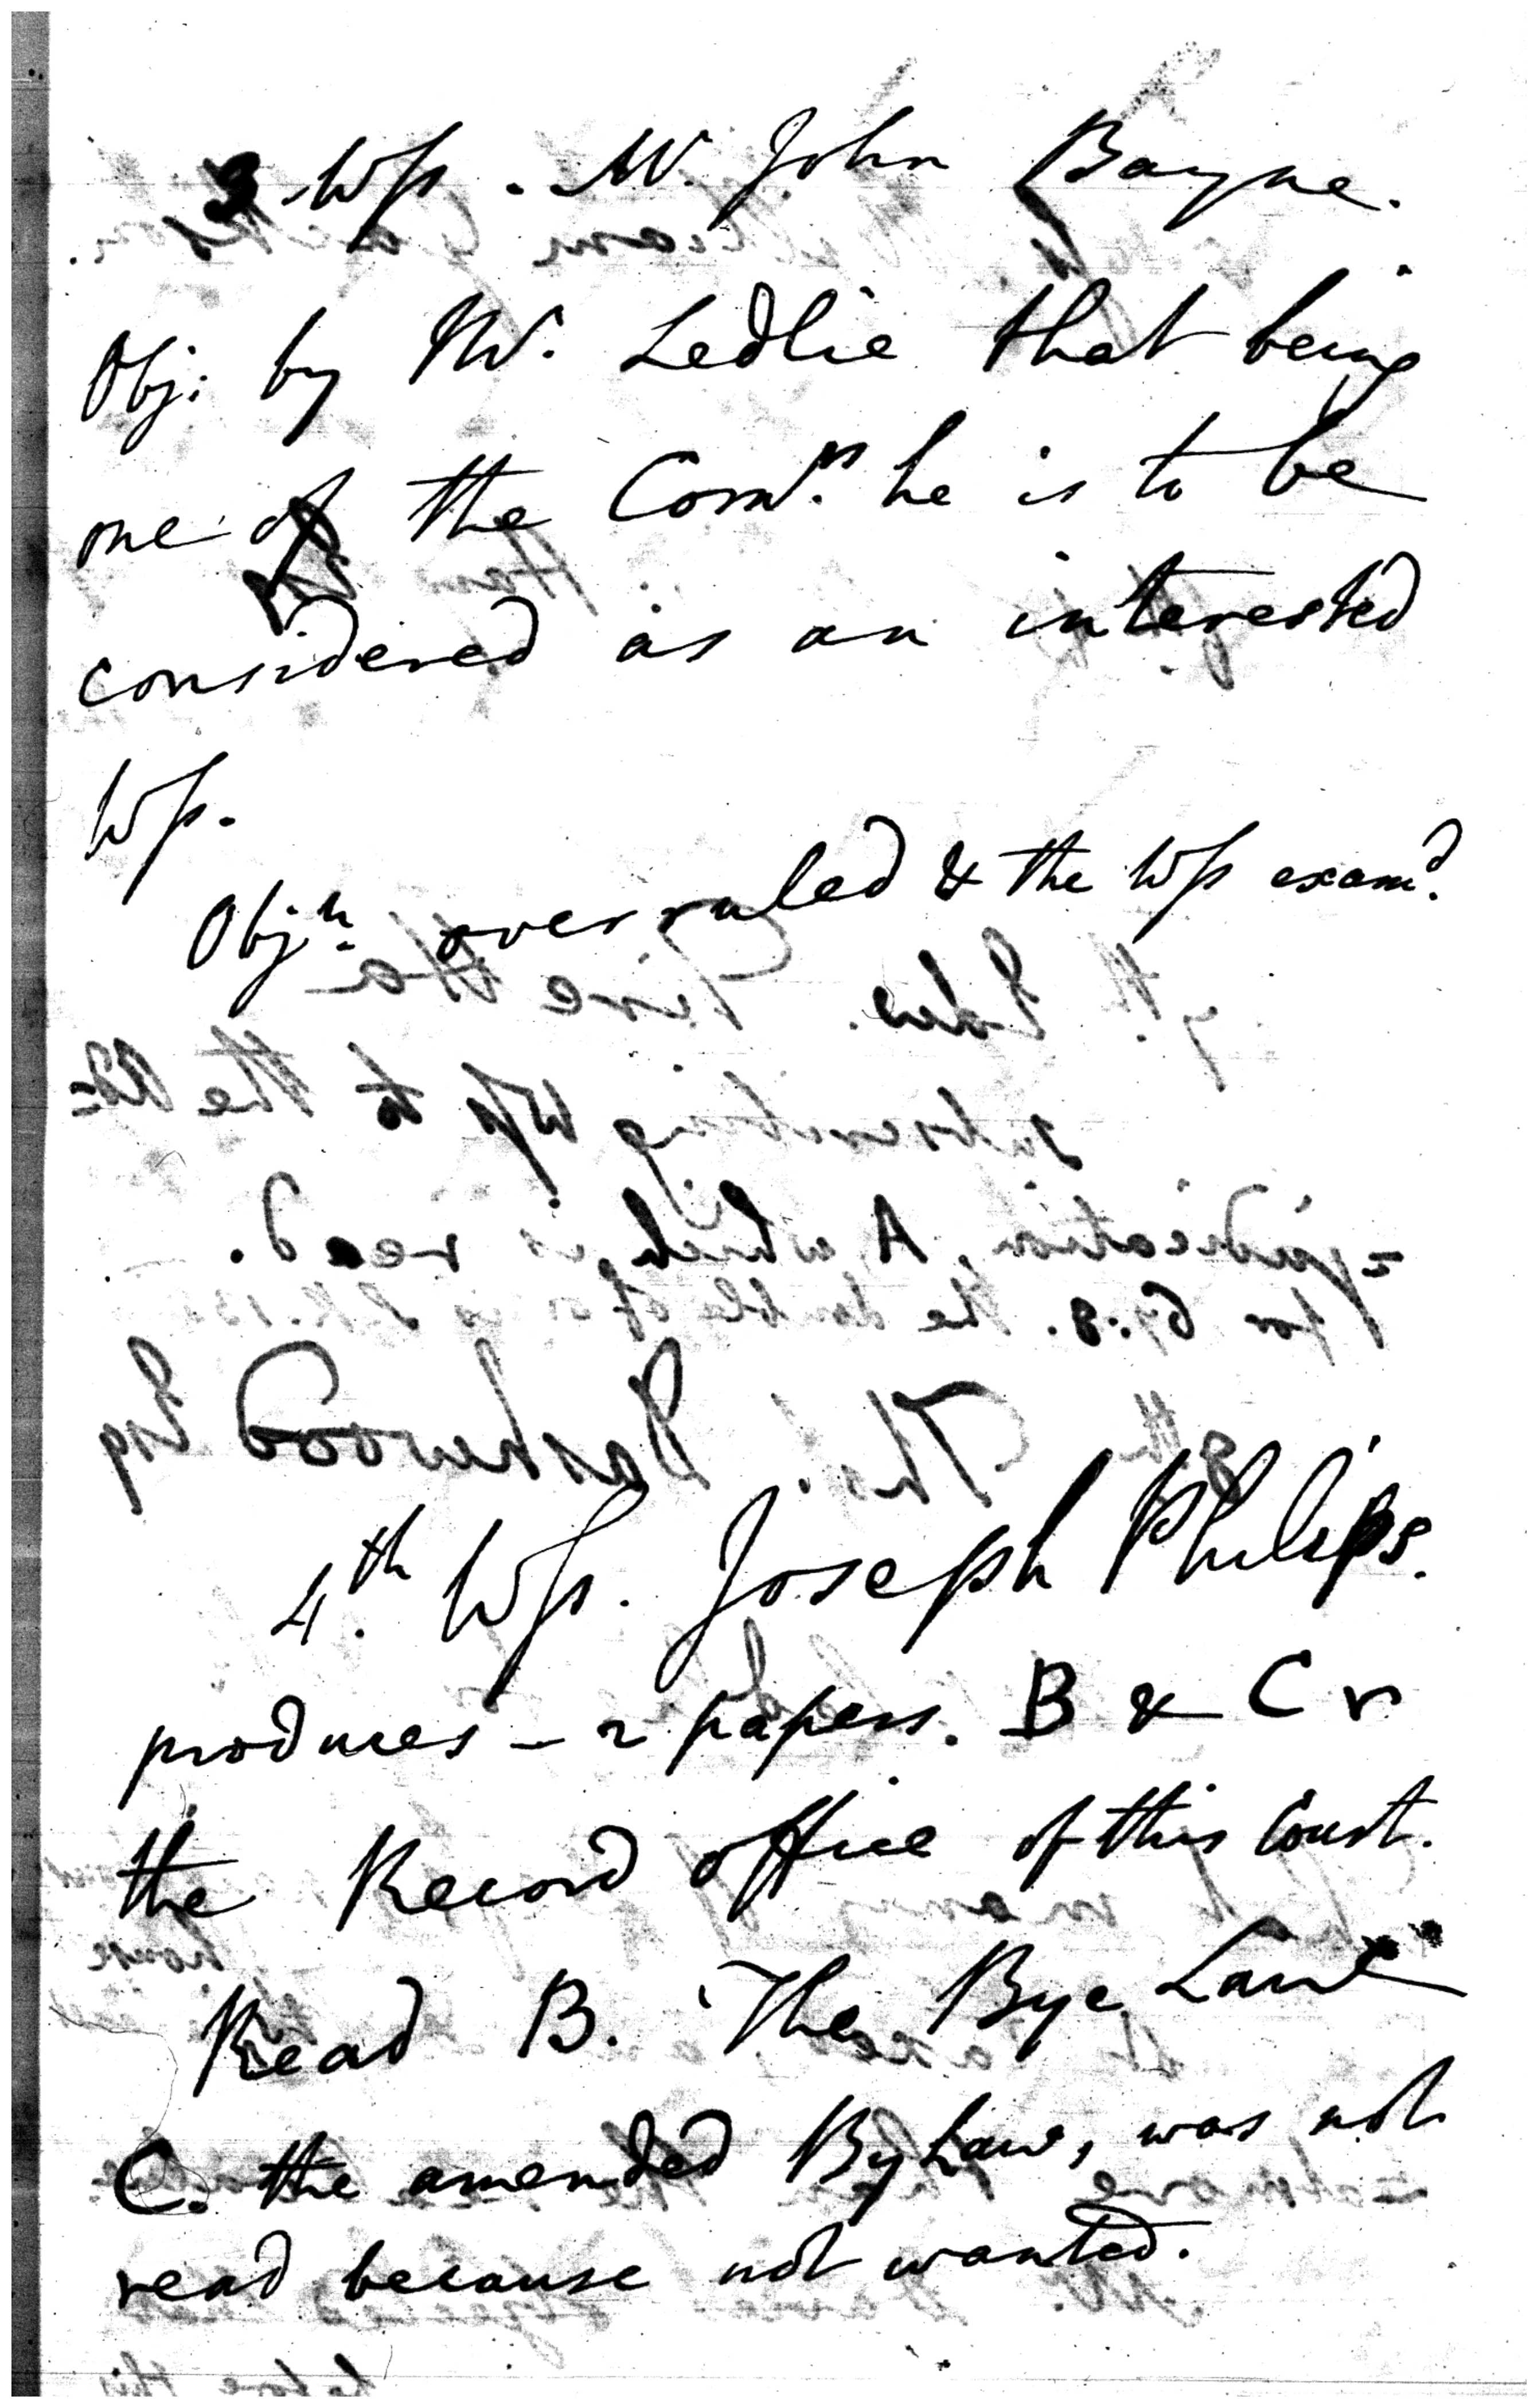 3 Wss. Mr. John Bayne.
Obj: by Mr. Ledlie that being
one of the Comrs. he is to be
considered as an interested
Wss.
Objn. overruled & the Wss examd.
4th. Wss. Joseph Philips.
produces - 2 papers. B & C
the Record office of this Court.
Read B. The Bye Law
C. the amended By Law, was not
read because not wanted.